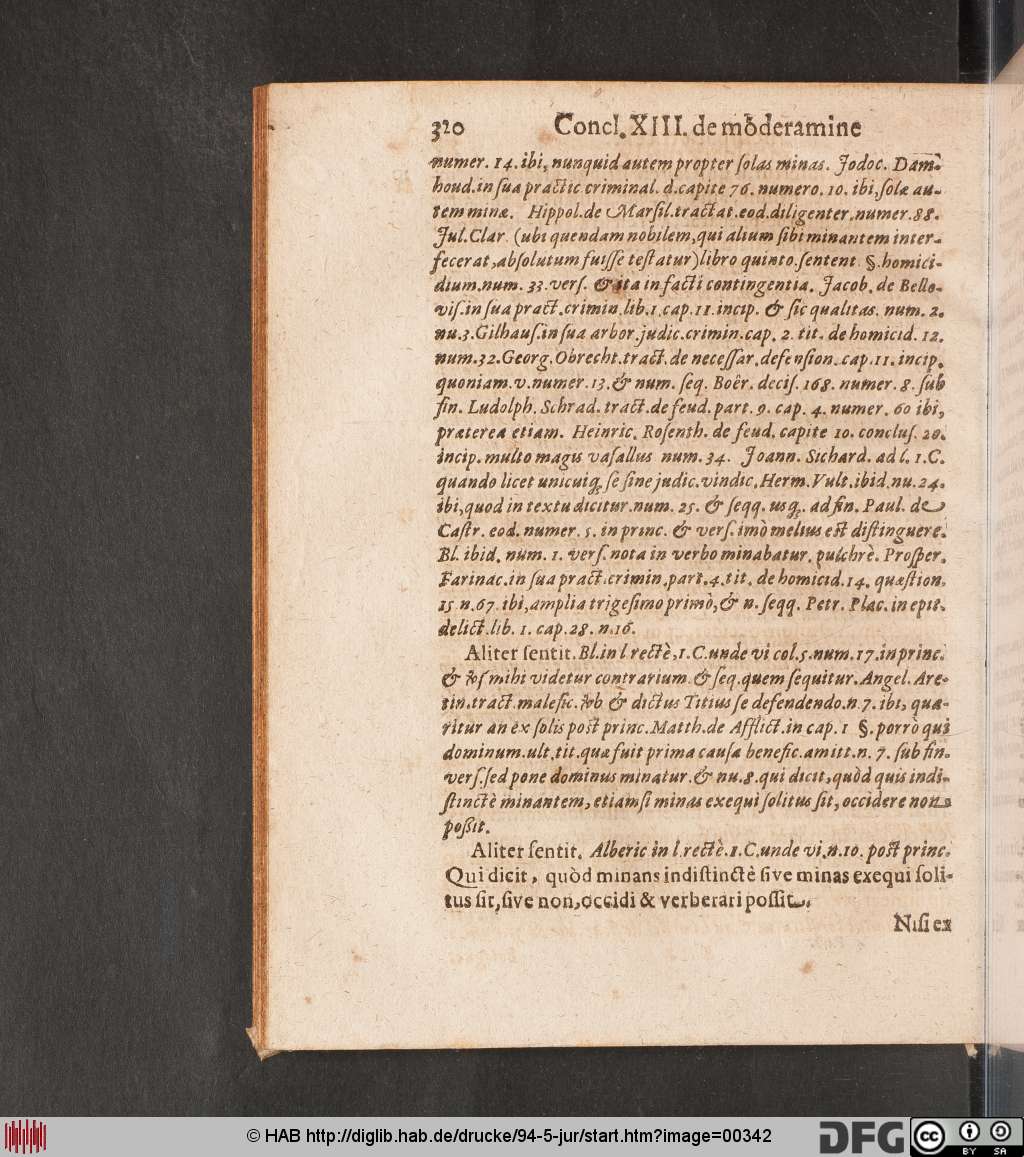 320 Concl. XIII. de moderamine
numer. 14. ibi, nunquid autem propter ſolas minas. Jodoc. Dam-
houd. in ſua practic criminal. d. capite 76. numero. 10. ibi, ſolæ au-
tem minæ. Hippol. de Marſil. tractat. eod. diligenter. numer. 88.
Jul. Clar. (ubi quendam nobilem, qui alium ſibi minantem inter-
fecerat, abſolutum fuiſſe teſtatur) libro quinto. ſentent. §. homici-
dium. num. 33. verſ. & ita in facti contingentia. Jacob. de Bello-
viſ. in ſua pract. crimin. lib. 1. cap. 11. incip. & ſic qualitas. num. 2.
nu. 3. Gilhauſ. in ſua arbor. judic. crimin. cap. 2. tit. de homicid. 12.
num. 32. Georg. Obrecht. tract. de neceſſar. defenſion. cap. 11. incip.
quoniam. v. numer. 13. & num. ſeq. Boër. deciſ. 168. numer. 8. ſub
fin. Ludolph. Schrad. tract. de feud. part. 9. cap. 4. numer. 60 ibi,
præterea etiam. Heinric. Roſenth. de feud. capite 10. concluſ. 20.
incip. multo magis vaſallus num. 34. Joann. Sichard. ad l. 1. C.
quando licet unicuiq; ſe ſine judic. vindic. Herm. Vult. ibid. nu. 24.
ibi, quod in textu dicitur. num. 25. & ſeqq. usq; ad fin. Paul. de
Caſtr. eod. numer. 5. in princ. & verſ. imò melius eſt diſtinguere.
Bl. ibid. num. 1. verſ. nota in verbo minabatur. pulchrè. Proſper.
Farinac. in ſua pract. crimin. part. 4. tit. de homicid. 14. quæſtion.
15 n. 67. ibi, amplia trigeſimo primò, & n. ſeqq. Petr. Plac. in epit.
delict. lib. 1. cap. 28. n. 16.
Aliter ſentit. Bl. in l rectè, 1. C. unde vi col. 5. num. 17. in princ.
& ibſ mihi videtur contrarium. & ſeq. quem ſequitur. Angel. Are-
tin. tract. malefic. vb & dictus Titius ſe defendendo. n. 7. ibi, quæ-
ritur an ex ſolis poſt princ. Matth. de Afflict. in cap. 1 §. porrò qui
dominum. ult. tit. quæ fuit prima cauſa benefic. amitt. n. 7. ſub fin.
verſ. ſed pone dominus minatur. & nu. 8. qui dicit, quòd quis indi-
ſtinctè minantem, etiamſi minas exequi ſolitus ſit, occidere non
poßit.
Aliter ſentit. Alberic in l. rectè. 1. C. unde vi. n. 10. poſt princ.
Qui dicit, quòd minans indiſtinctè ſive minas exequi ſoli-
tus ſit, ſive non, occidi & verberari poſſit.
Niſi ex
© HAB http://diglib.hab.de/drucke/94-5-jur/start.htm?image=00342
DFG cc BY SA